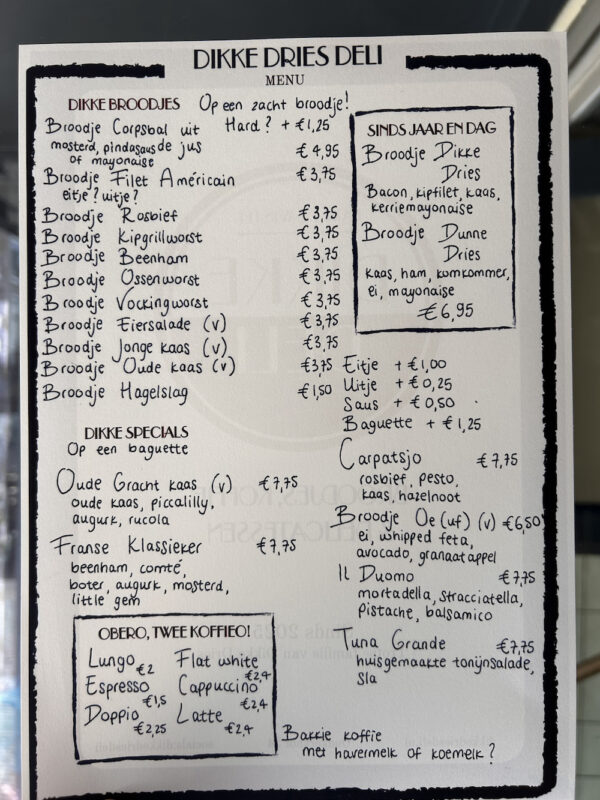 DIKKE DRIES DELI
MENU
DIKKE BROODJES
Op een zacht broodje!
Hard? + €1,25
Broodje Corpsbal uit de jus €4,95
mosterd, pindasaus
of mayonaise
Broodje Filet Américain €3,75
eitje? uitje?
Broodje Rosbief €3,75
Broodje Kipgrillworst €3,75
Broodje Beenham €3,75
Broodje Ossenworst €3,75
Broodje Vockingworst €3,75
Broodje Eiersalade (v) €3,75
Broodje Jonge kaas (v) €3,75
Broodje Oude kaas (v) €3,75
Broodje Hagelslag €1,50
SINDS JAAR EN DAG
Broodje Dikke
Dries
Bacon, kipfilet, kaas,
kerriemayonaise
Broodje Dunne
Dries
kaas, ham, komkommer,
ei, mayonaise
€6,95
Eitje + €1,00
Uitje + €0,25
Saus + €0,50
Baguette + €1,25
DIKKE SPECIALS
Op een baguette
Oude Gracht kaas (v) €7,75
oude kaas, piccalilly,
augurk, rucola
Franse Klassieker €7,75
beenham, comté,
boter, augurk, mosterd,
little gem
Carpatsjo €7,75
rosbief, pesto,
kaas, hazelnoot
Broodje Oe(uf) (v) €6,50
ei, whipped feta,
avocado, granaatappel
Il Duomo €7,75
mortadella, stracciatella,
pistache, balsamico
Tuna Grande €7,75
huisgemaakte tonijnsalade,
sla
OBERO, TWEE KOFFIEO!
Lungo €2
Espresso €1,5
Doppio €2,25
Flat white €2,4
Cappuccino €2,4
Latte €2,4
Bakkie koffie
met havermelk of koemelk?